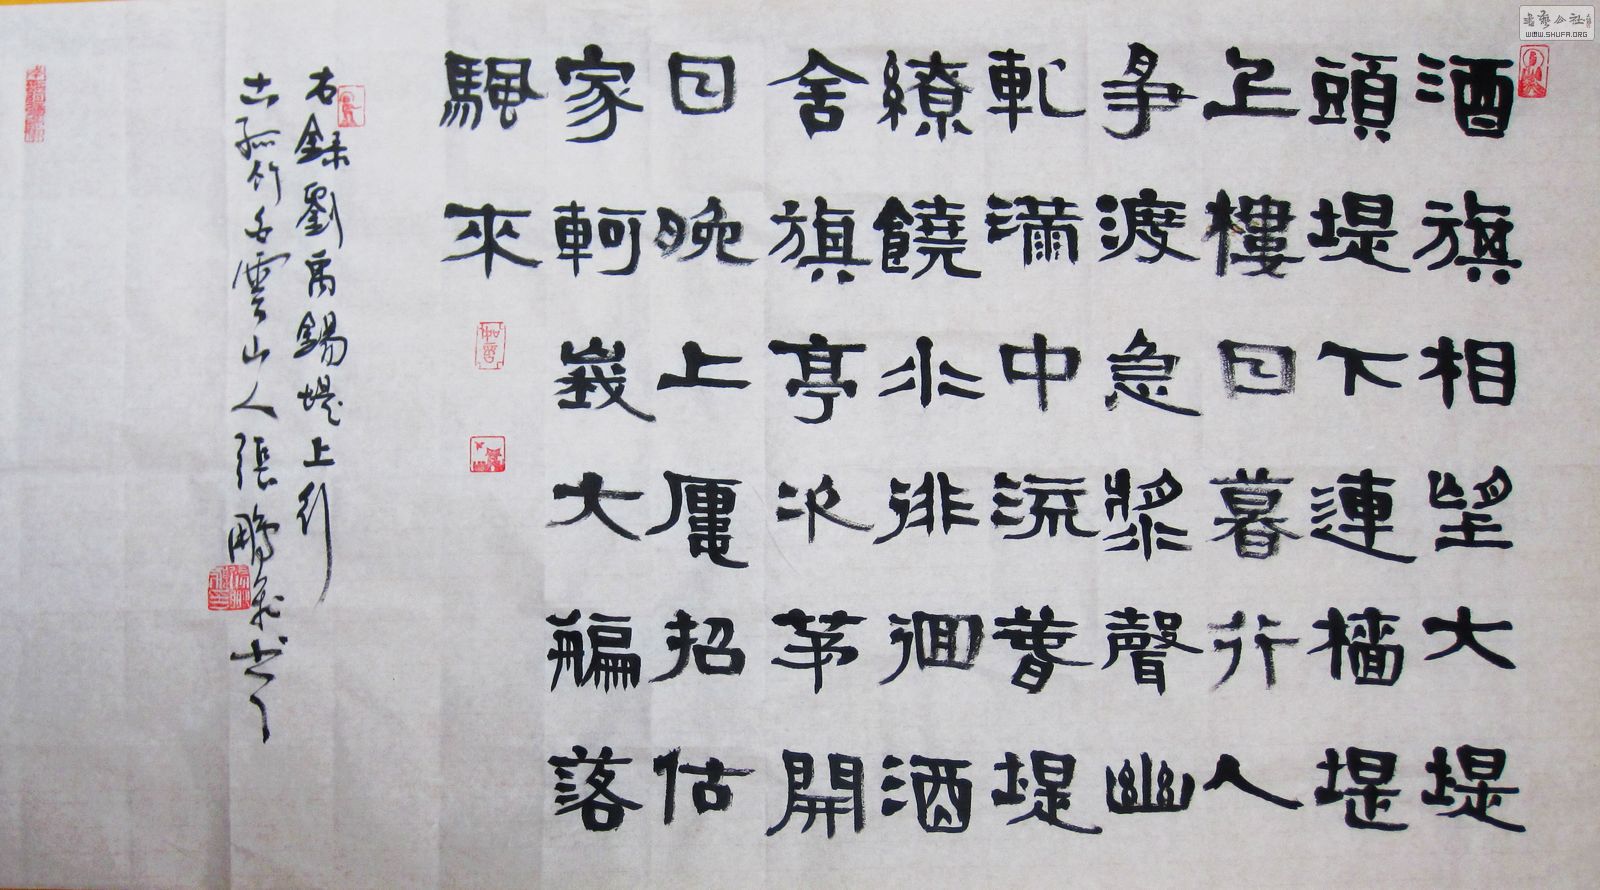 酒旗相望大堤
頭堤下連檣堤
上樓日暮行人
爭渡急槳聲幽
軋滿中流春堤
繚饒水徘徊酒
舍旗亭次第開
日晚上廔招估
家軻峩大艑落
颿來
右録劉禹錫堤上行
古孤竹白雲山人張鵬飛书
書藝公社
WWW.SHUFA.ORG